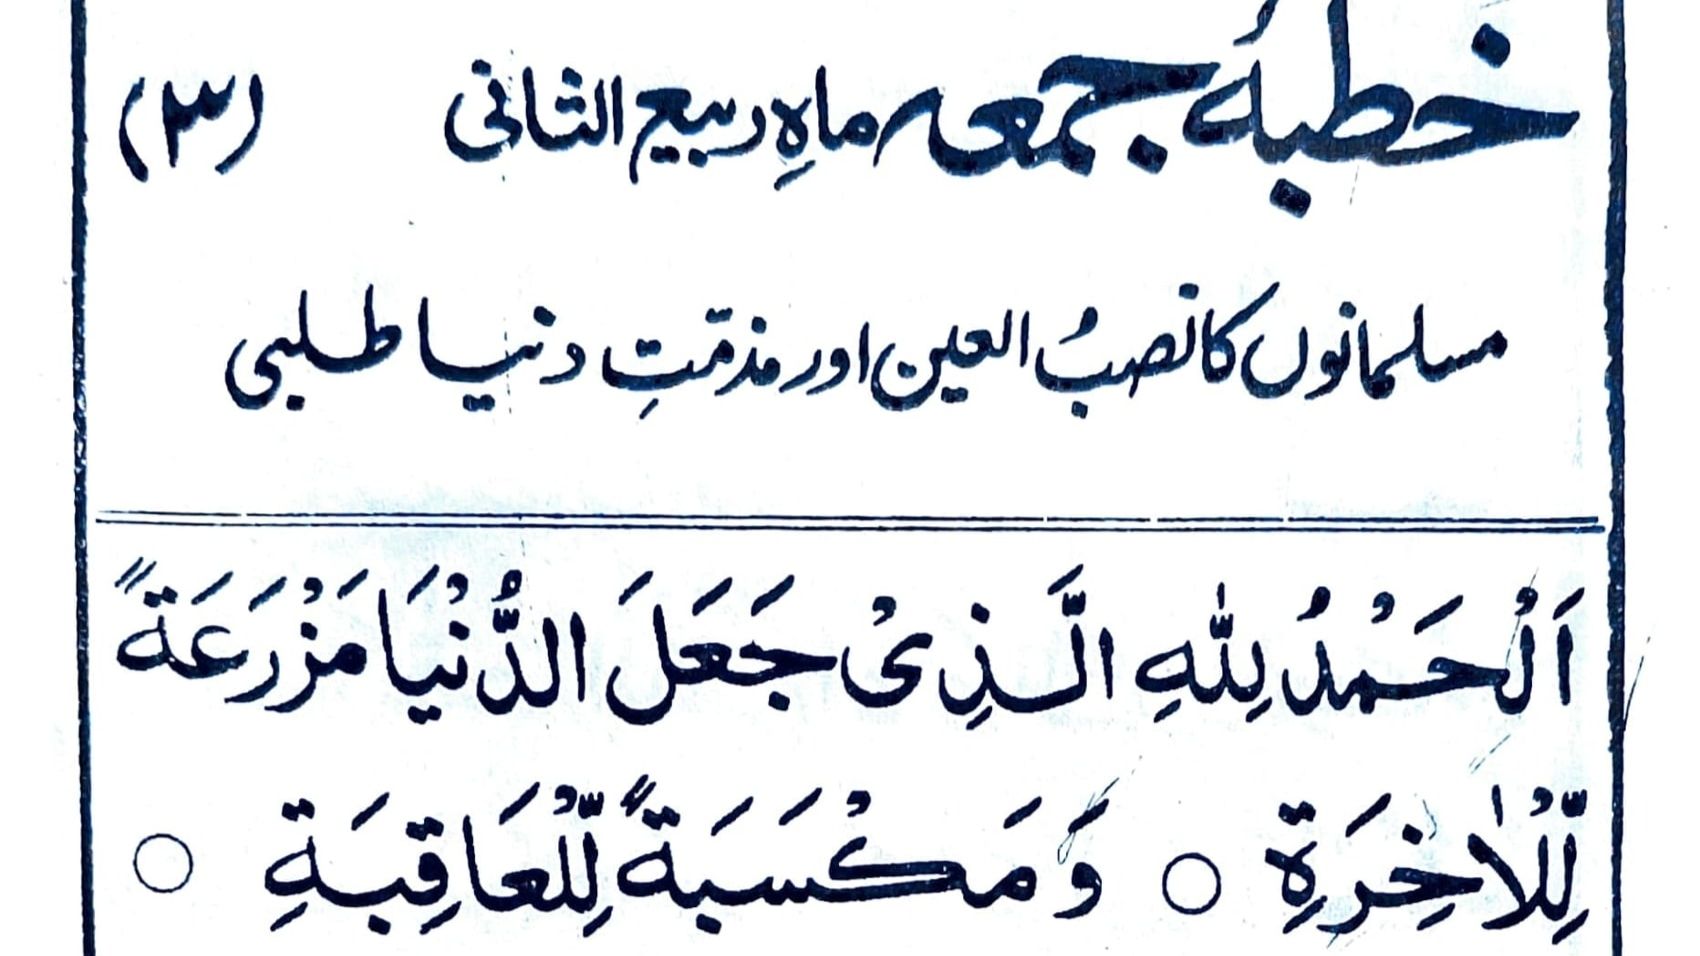 خطبۂ جمعہ ماہِ ربیع الثانی (۳)
مسلمانوں کا نصبُ العین اور مذمّتِ دنیا طلبی
اَلْحَمْدُ لِلّٰهِ الَّذِیْ جَعَلَ الدُّنْیَا مَزْرَعَةً
لِّلْاٰخِرَةِ ○ وَمَکْسَبَةً لِّلْعَاقِبَةِ ○